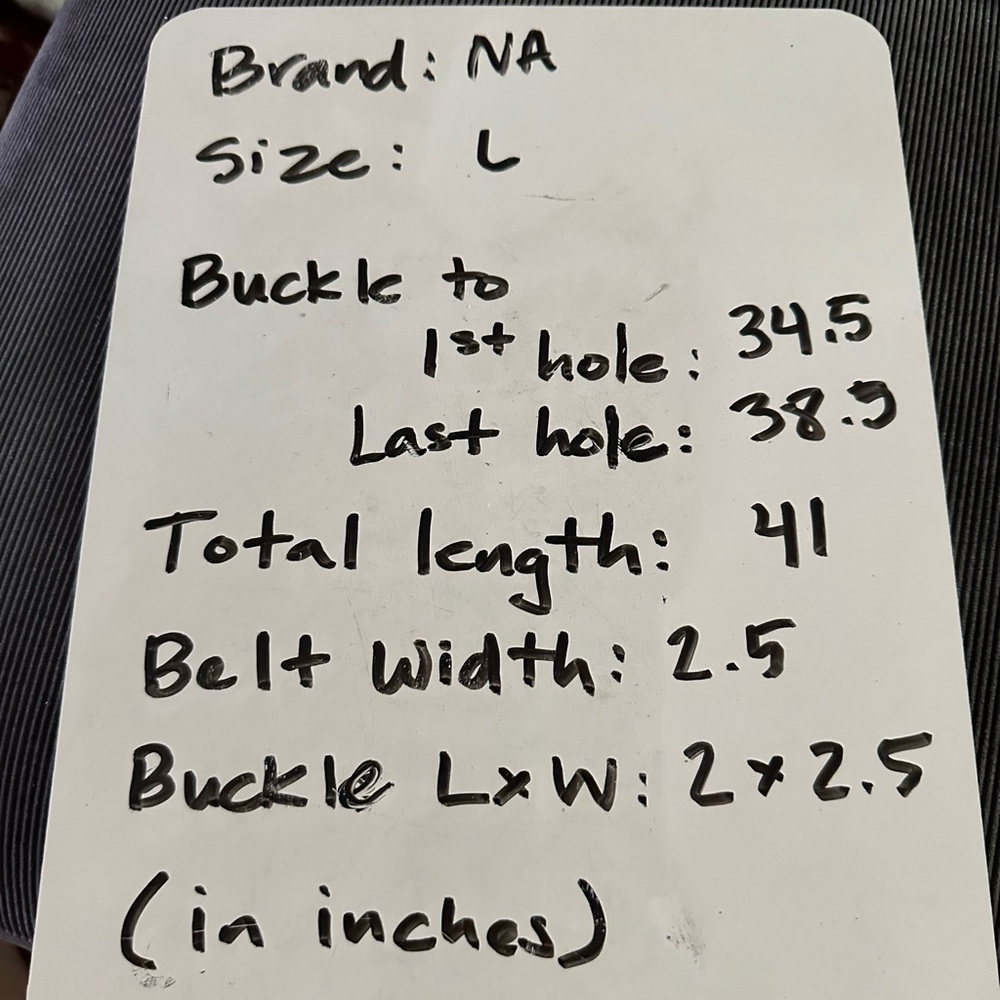 Brand: NA
Size: L
Buckle to
1st hole: 34.5
Last hole: 38.5
Total length: 41
Belt Width: 2.5
Buckle LxW: 2 x 2.5
(in inches)